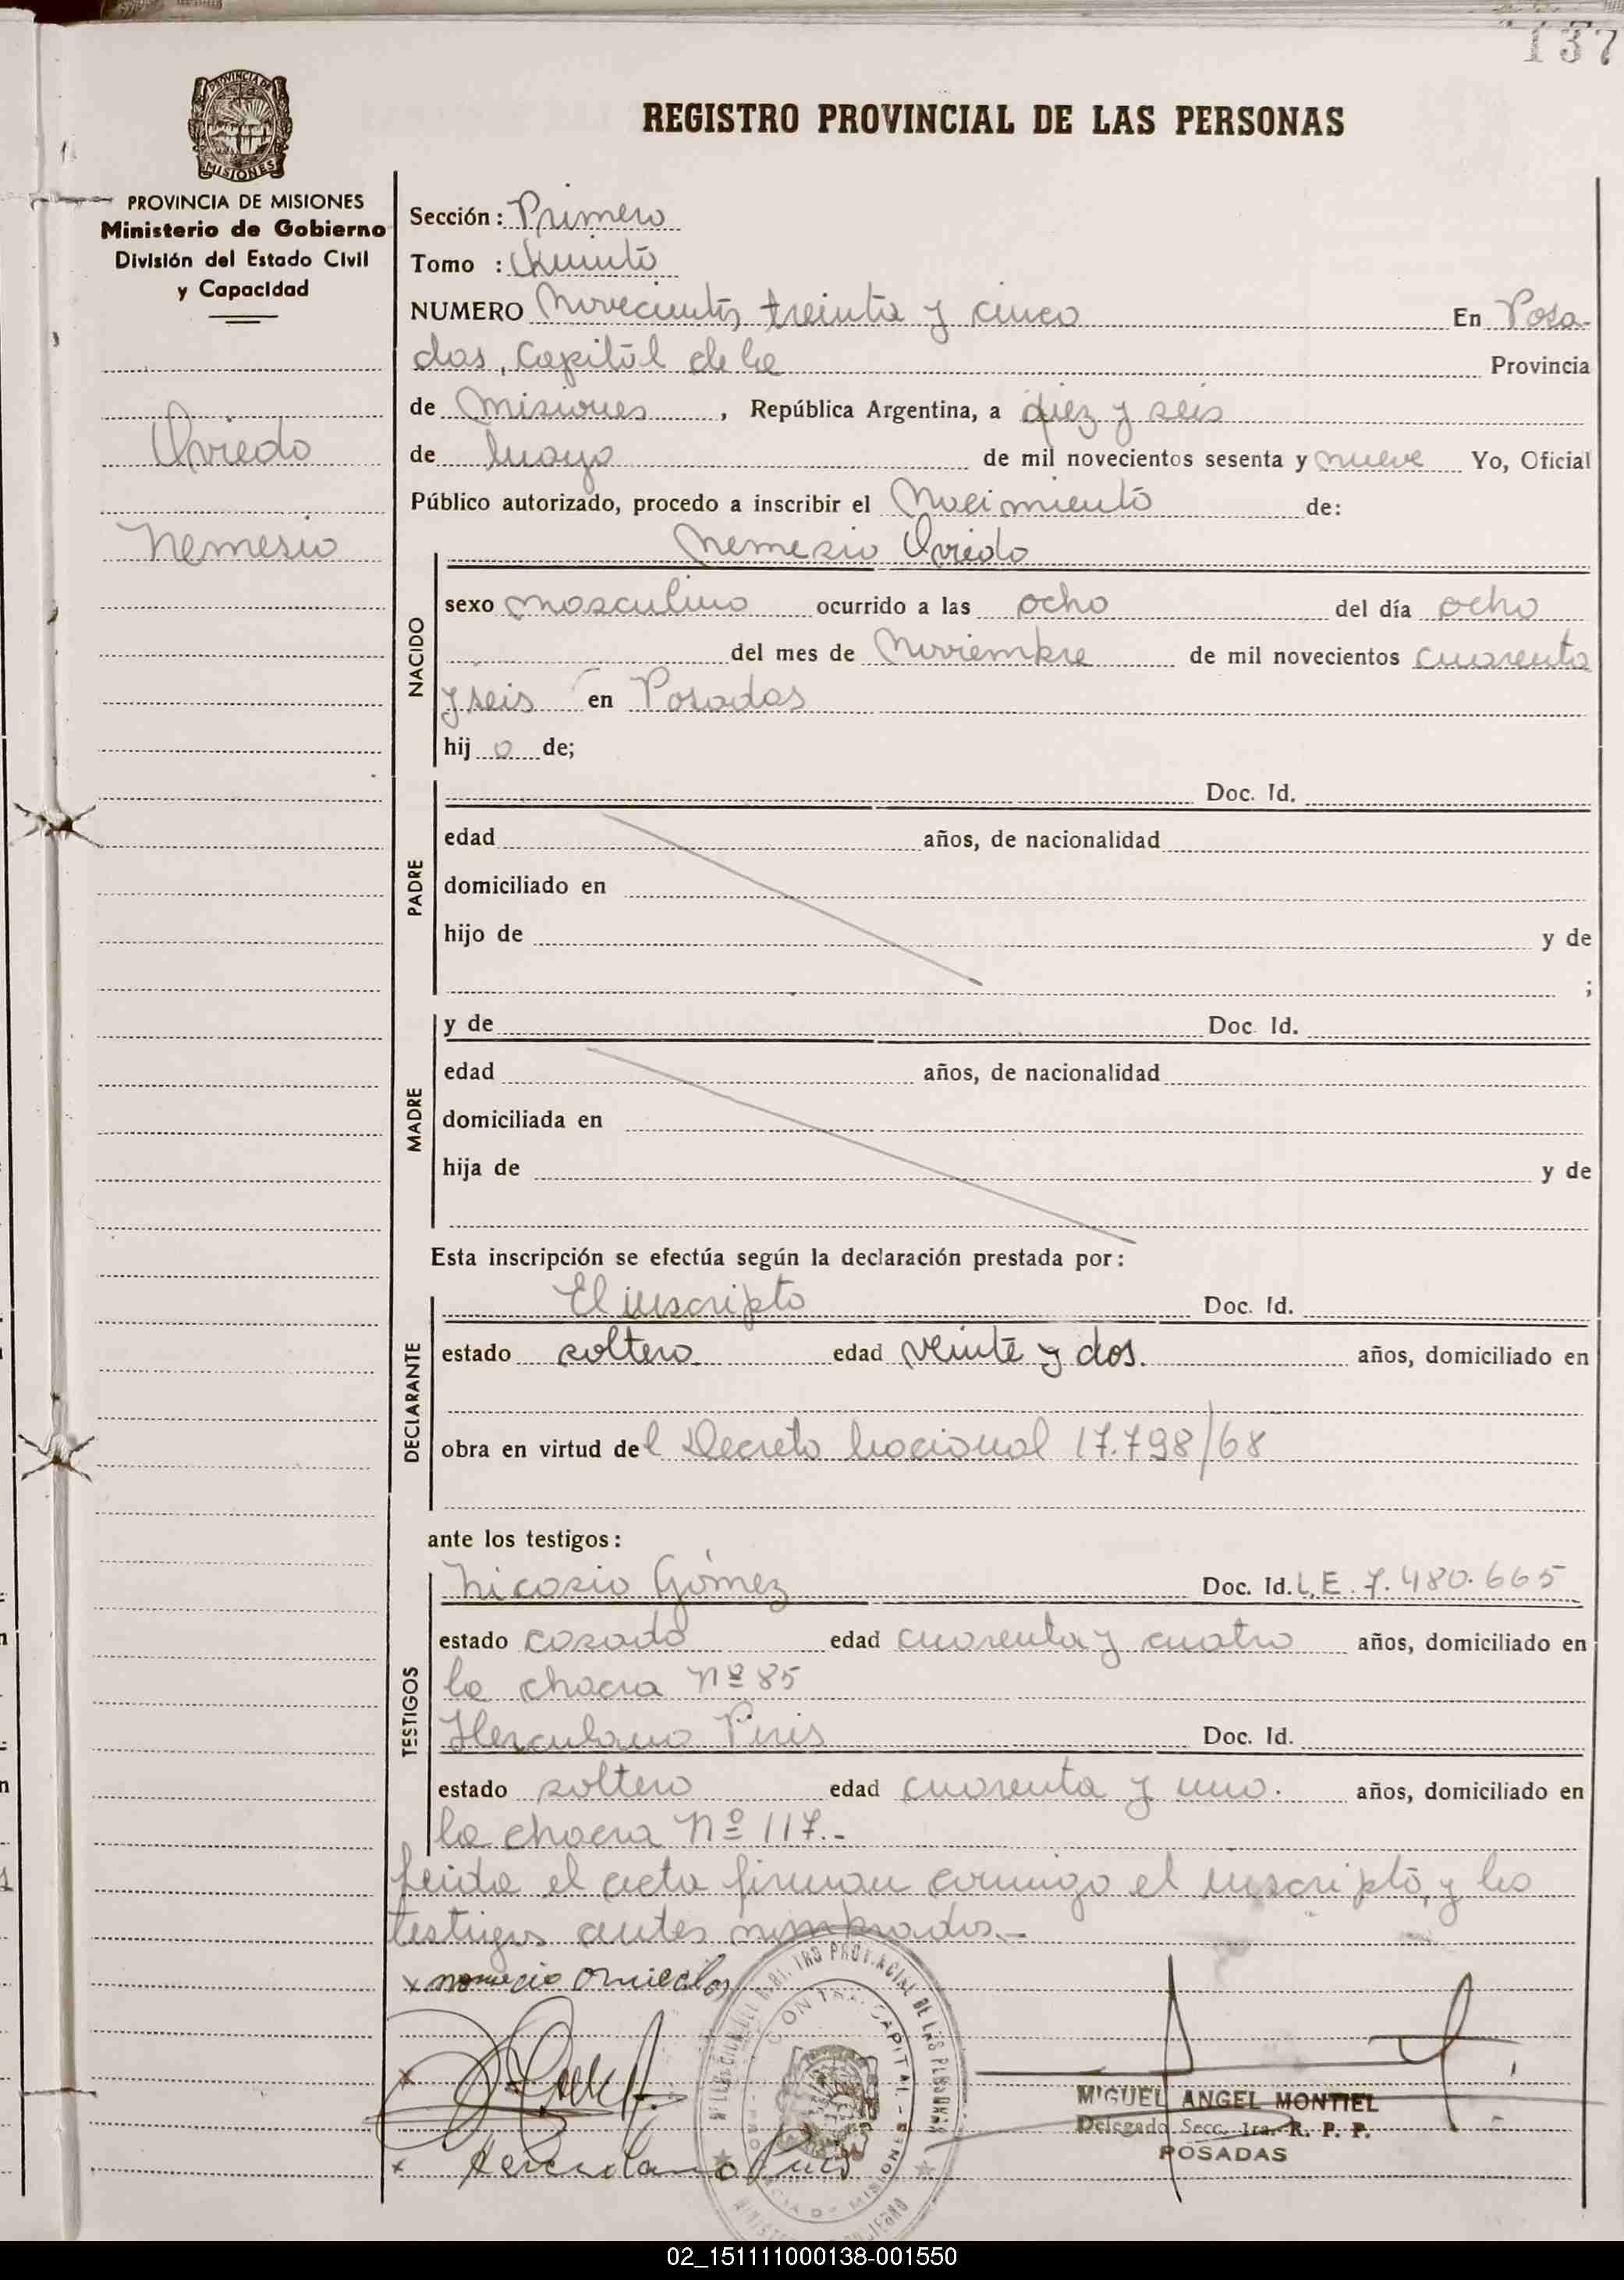 137
REGISTRO PROVINCIAL DE LAS PERSONAS
PROVINCIA DE MISIONES
MISIONES
PROVINCIA DE MISIONES
Ministerio de Gobierno
División del Estado Civil
y Capacidad
Oviedo
Nemesio
Sección: Primero
Tomo : Quinto
NUMERO Novecientos treinta y cinco En Posa-
das, Capital de la Provincia
de Misiones, República Argentina, a diez y seis
de mayo de mil novecientos sesenta y nueve Yo, Oficial
Público autorizado, procedo a inscribir el Nacimiento de:
NACIDO
Nemesio Oviedo
sexo masculino ocurrido a las ocho del día ocho
del mes de Noviembre de mil novecientos cuarenta
y seis en Posadas
hijo de;
PADRE
Doc. Id.
edad años, de nacionalidad
domiciliado en
hijo de y de
;
MADRE
y de Doc. Id.
edad años, de nacionalidad
domiciliada en
hija de y de
Esta inscripción se efectúa según la declaración prestada por:
DECLARANTE
El inscripto Doc. Id.
estado soltero edad veinte y dos. años, domiciliado en
obra en virtud del Decreto Nacional 17.798/68
ante los testigos:
TESTIGOS
Nicasio Gómez Doc. Id. L.E. 7.480.665
estado casado edad cuarenta y cuatro años, domiciliado en
la chacra Nº 85
Herculano Piris Doc. Id.
estado soltero edad cuarenta y uno. años, domiciliado en
la chacra Nº 117.-
Leida el acta firman conmigo el inscripto, y los
testigos antes nombrados.-
x
x
x Herculano Piris
MIGUEL ANGEL MONTIEL
Delegado Secc. 1ra. R. P. P.
POSADAS
02_151111000138-001550